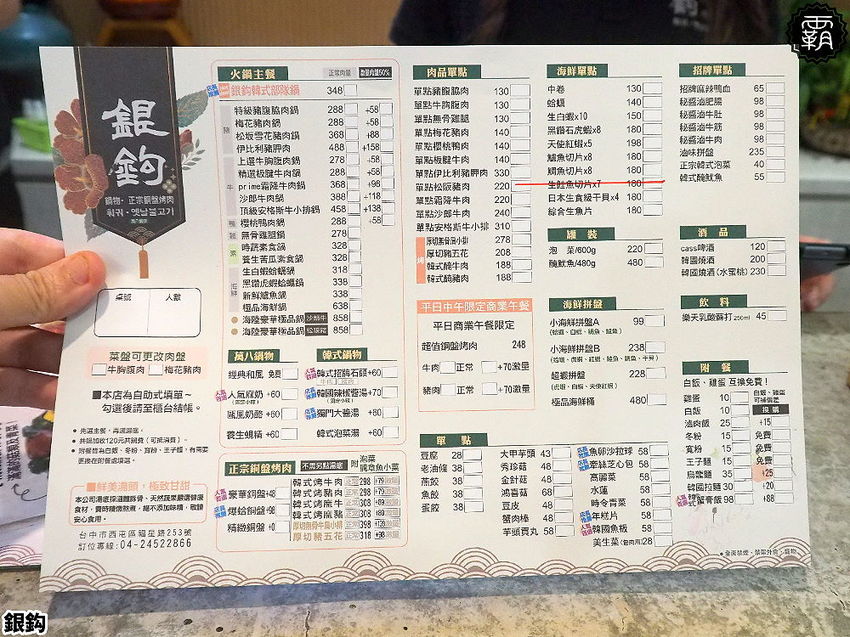 霸
銀鉤
鍋物·正宗銅盤烤肉
훠궈·옛날불고기
桌號 人數
菜盤可更改肉盤
牛胸腹肉 梅花豬肉
■本店為自助式填單~
勾選後請至櫃台結帳。
■鮮美湯頭,極致甘甜
台中市西屯區福星路253號
訂位專線:04-24522866
火鍋主餐 正常肉量
銀鉤韓式部隊鍋 348
豬
特級豬腹脇肉鍋 288 +58
梅花豬肉鍋 288 +58
松坂雪花豬肉鍋 368 +88
伊比利豬肉鍋 488 +158
牛
上選牛胸腹肉鍋 278 +58
精選板腱牛肉鍋 288 +58
prime霜降牛肉鍋 368 +98
沙郎牛肉鍋 388 +118
頂級安格斯牛小排鍋 458 +138
鴨 櫻桃鴨肉鍋 288 +58
雞 無骨雞腿鍋 288
素
時蔬素食鍋 328
養生苦瓜素食鍋 328
海鮮
生白蝦蛤蠣鍋 318
黑鑽虎蝦蛤蠣鍋 338
新鮮鱸魚鍋 338
極品海鮮鍋 638
海陸豪華極品鍋 858
海陸豪華極品鍋 858
萬八鍋物
經典和風 免費
人氣麻奶 +60
颱風奶酪 +60
養生蜆精 +60
韓式鍋物
韓式招牌石頭 +60
韓國辣椒醬湯 +70
獨門大醬湯 +80
韓式泡菜湯 +60
正宗銅盤烤肉 不需另點湯底 附 泡菜
醃章魚小菜
豪華銅盤 +48
爆蛤銅盤 +98
精緻銅盤
韓式烤牛肉 298
韓式烤豬肉 298
韓式烤鷹牛 308
韓式烤鷹豬 308
厚切無骨牛鳥小排 398
厚切豬五花 318
肉品單點
單點豬腹脇肉 130
單點牛胸腹肉 130
單點無骨雞腿 130
單點梅花豬肉 130
單點櫻桃鴨肉 130
單點板腱牛肉 130
單點伊比利豬胛肉 330
單點松阪豬肉 220
單點霜降牛肉 220
單點沙郎牛肉 240
單點安格斯牛小排 310
烤
厚切無骨牛小排 278
厚切豬五花 208
韓式醃牛肉 188
韓式醃豬肉 188
平日中午限定商業午餐
平日商業午餐限定
超值銅盤烤肉 248
牛肉 正常 +70激量
豬肉 正常 +70激量
單點
豆腐 28
老油條 38
燕餃 38
魚餃 38
蛋餃 38
大甲芋頭 43
秀珍菇 48
金針菇 48
鴻喜菇 68
豆皮 48
蟹肉棒 48
芋頭貢丸 58
魚卵沙拉球 58
牽絲芝心包 58
高麗菜 58
水蓮 58
時令青菜 58
年糕片 58
韓國魚板 58
美生菜 28
海鮮單點
中卷 130
蛤蠣 140
生白蝦x10 150
黑鑽石虎蝦x8 180
天使紅蝦x5 198
鱸魚切片x8 180
鯛魚切片x8 180
生鮭魚切片x7 180
日本生食級干貝x4 180
綜合生魚片 180
罐裝
泡 菜/600g 220
醃魷魚/480g 480
海鮮拼盤
小海鮮拼盤A 99
小海鮮拼盤B 238
超蝦拼盤 228
極品海鮮桶 480
招牌單點
招牌麻辣鴨血 65
秘醬滷肥腸 98
秘醬滷牛肚 98
秘醬滷牛筋 98
秘醬滷牛肉 98
滷味拼盤 235
正宗韓式泡菜 40
韓式醃魷魚 55
酒品
cass啤酒 120
韓國燒酒 200
韓國燒酒(水蜜桃) 230
飲料
樂天乳酸蘇打250ml 45
附餐
白飯、雞蛋 互換免費!
雞蛋 10
白飯 10
滷肉飯 25 +15
冬粉 15 免費
寬粉 15 免費
王子麵 15 免費
烏龍麵 35 +25
韓國拉麵 30 +20
韓蟹膏飯 98 +88
銀鉤